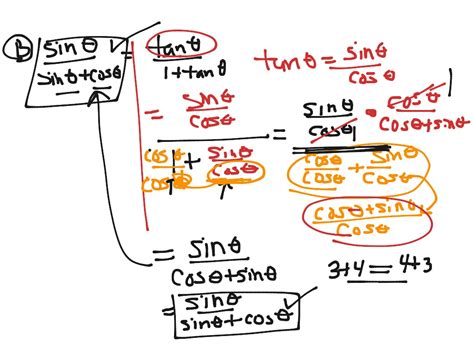 B sinθ / sinθ+cosθ = tanθ / 1+tanθ
tanθ = sinθ / cosθ
= sinθ / cosθ / cosθ / cosθ 1 + sinθ / cosθ = sinθ / cosθ / cosθ / cosθ + sinθ / cosθ • cosθ / cosθ+sinθ 1
cosθ+sinθ / cosθ
= sinθ / cosθ+sinθ
3+4 = 4+3
= sinθ / sinθ+cosθ